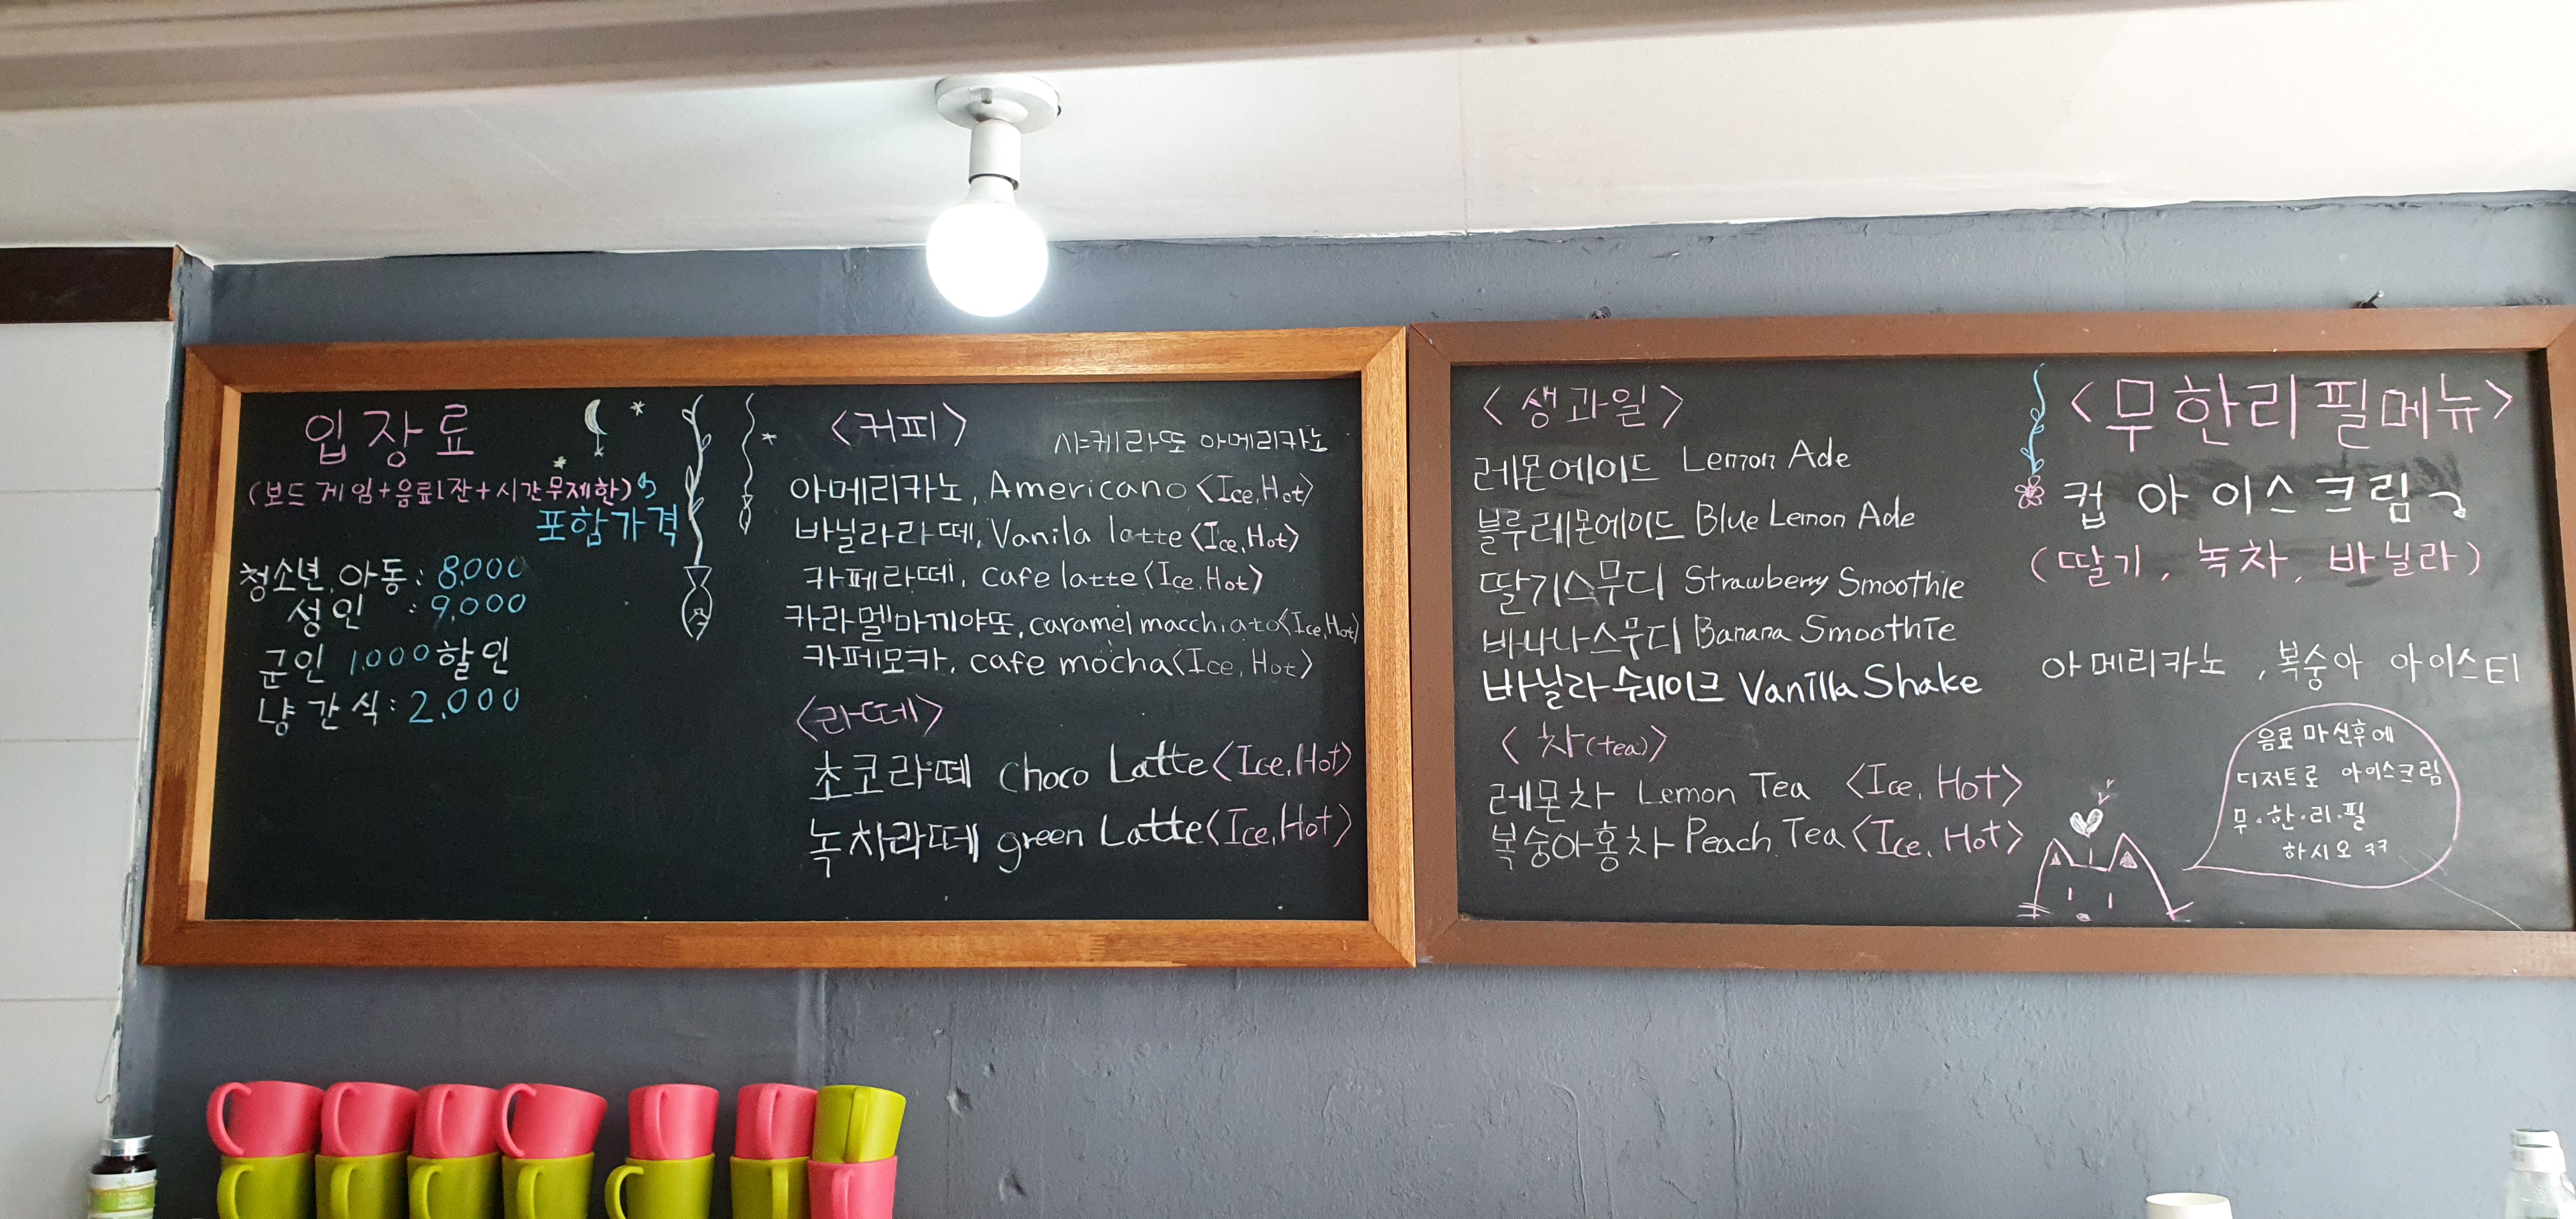 입장료
(보드게임+음료1잔+시간무제한)
포함가격
청소년, 아동: 8,000
성인 : 9,000
군인 1,000할인
냥간식: 2,000
<커피>
샤케라또 아메리카노
아메리카노, Americano <Ice, Hot>
바닐라라떼, Vanila latte <Ice, Hot>
카페라떼, cafe latte <Ice, Hot>
카라멜마끼야또, caramel macchiato <Ice, Hot>
카페모카, cafe mocha <Ice, Hot>
<라떼>
초코라떼 choco Latte <Ice, Hot>
녹차라떼 green Latte <Ice, Hot>
<생과일>
레몬에이드 Lemon Ade
블루레몬에이드 Blue Lemon Ade
딸기스무디 Strawberry Smoothie
바나나스무디 Banana Smoothie
바닐라쉐이크 Vanilla Shake
<차(tea)>
레몬차 Lemon Tea <Ice, Hot>
복숭아홍차 Peach Tea <Ice, Hot>
<무한리필메뉴>
컵 아이스크림
(딸기, 녹차, 바닐라)
아메리카노, 복숭아 아이스티
음료 마신후에
디저트로 아이스크림
무·한·리·필
하시오 ㅋㅋ